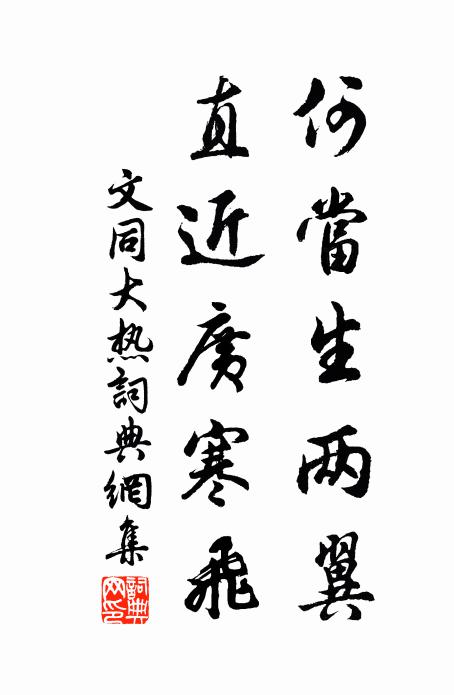 何當生两翼
直近廣寒飛
文同大热詞典網集
詞典網印